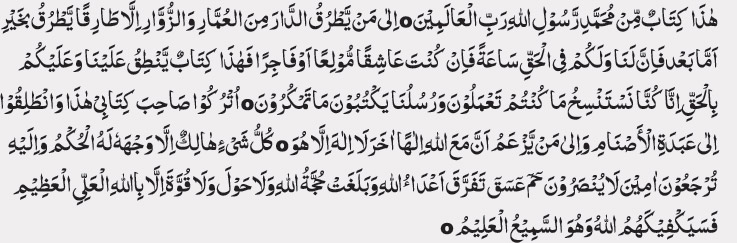 هٰذَا كِتَابٌ مِّنْ مُحَمَّدٍ رَّسُوْلِ اللهِ رَبِّ الْعَالَمِيْنَ o اِلٰى مَنْ يَّطْرُقُ الدَّارَ مِنَ الْعُمَّارِ وَالزُّوَّارِ اِلَّا طَارِقًا يَّطْرُقُ بِخَيْرٍ
اَمَّا بَعْد فَاِنَّ لَنَا وَلَكُمْ فِى الْحَقِّ سَاعَةً فَاِنْ كُنْتَ عَاشِقًا مُّوْلِعًا اَوْ فَاجِرًا فَهٰذَا كِتَابٌ يَّنْطِقُ عَلَيْنَا وَعَلَيْكُمْ
بِالْحَقِّ اِنَّا كُنَّا نَسْتَنْسِخُ مَا كُنْتُمْ تَعْمَلُوْنَ وَرُسُلُنَا يَكْتُبُوْنَ مَا تَمْكُرُوْنَ o اُتْرُكُوْا صَاحِبَ كِتَابِىْ هٰذَا وَانْطَلِقُوْا
اِلٰى عَبَدَةِ الْأَصْنَامِ وَاِلٰى مَنْ يَّزْعَمُ اَنَّ مَعَ اللهِ اِلٰهًا اٰخَرَ لَا اِلٰهَ اِلَّا هُوَ o كُلُّ شَىْءٍ هَالِكٌ اِلَّا وَجْهَهٗ لَهُ الْحُكْمُ وَاِلَيْهِ
تُرْجَعُوْنَ اٰمِيْنَ لَا يُنْصَرُوْنَ حٰمٓ عٓسٓقٓ تَفَرَّقَ اَعْدَاءُ اللهِ وَبَلَغَتْ حُجَّةُ اللهِ وَلَا حَوْلَ وَلَا قُوَّةَ اِلَّا بِاللهِ الْعَلِّىِ الْعَظِيْمِ
فَسَيَكْفِيْكَهُمُ اللهُ وَهُوَ السَّمِيْعُ الْعَلِيْمُ o